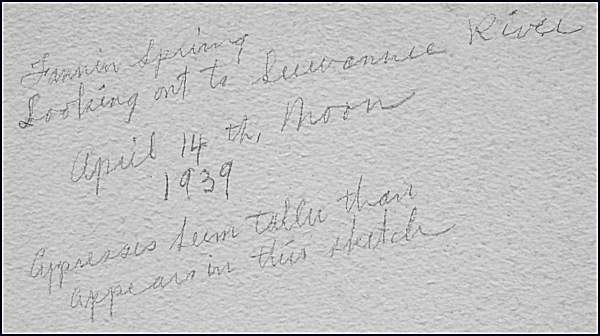 Fannin Spring
Looking out to Suwannee River
April 14th, Moon
1939
Cypresses seem taller than
appears in this sketch